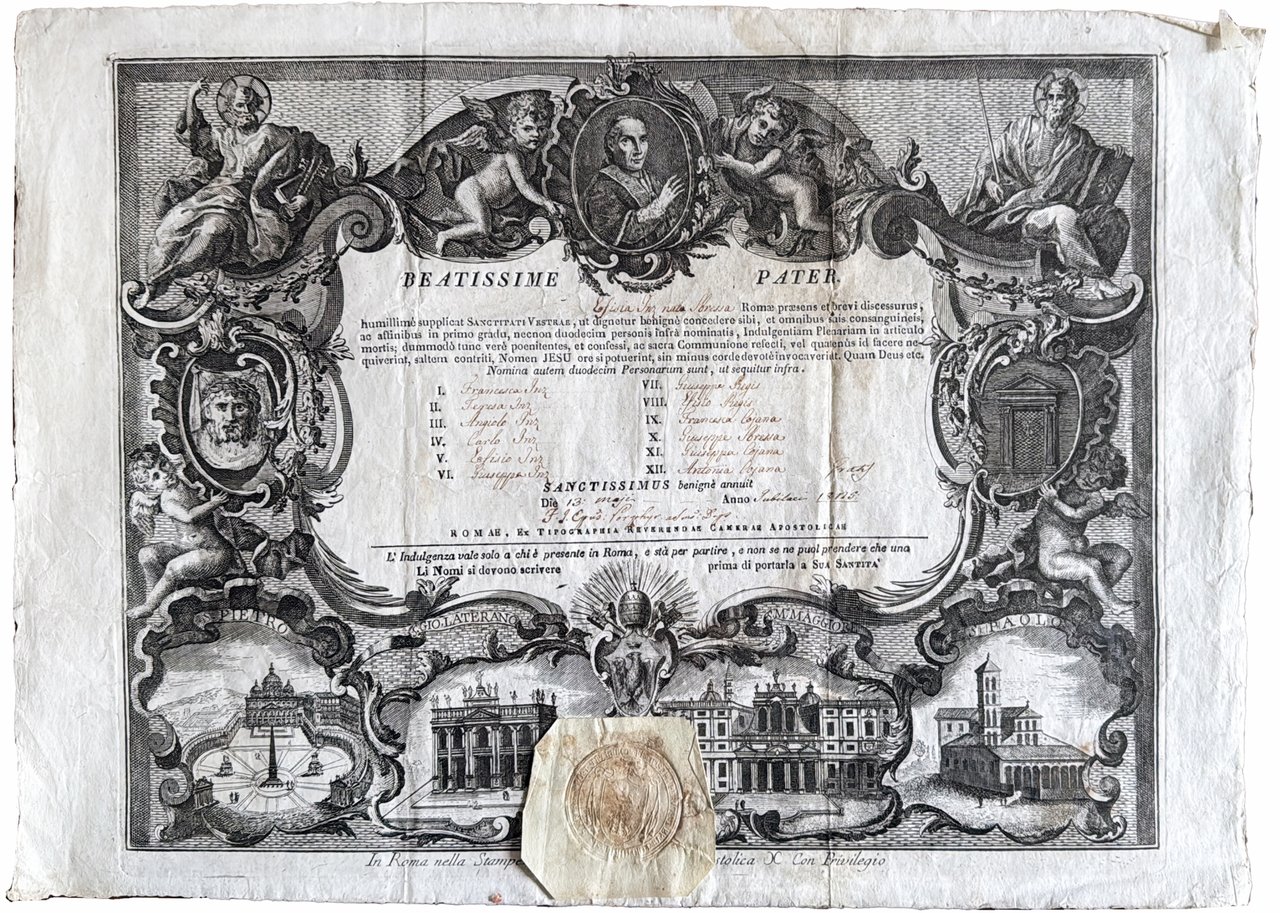 BEATISSIME PATER.
Efisia Inz nata Sbressa Romæ præsens et brevi discessurus,
humillimè supplicat SANCTITATI VESTRAE, ut dignetur benignè concedere sibi, et omnibus suis consanguineis,
ac affinibus in primo gradu, necnon duodecim personis infrà nominatis, Indulgentiam Plenariam in articulo
mortis; dummodò tunc verè poenitentes, et confessi, ac sacra Communione refecti, vel quatenùs id facere ne-
quiverint, saltem contriti, Nomen JESU ore si potuerint, sin minus corde devotè invocaverint. Quam Deus etc.
Nomina autem duodecim Personarum sunt, ut sequitur infra.
I. Francesca Inz
II. Teresa Inz
III. Angiolo Inz
IV. Carlo Inz
V. Eefisio Inz
VI. Giuseppe Inz
VII. Giuseppe Regis
VIII. Regis
IX. Francesca Cojana
X. Giuseppe Sbressa
XI. Giuseppa Cojana
XII. Antonia Cojana
SANCTISSIMUS benignè annuit
Die 13. Maji Anno Jubilaei
ROMAE, Ex TYPOGRAPHIA REVERENDAE CAMERAE APOSTOLICAE
L' Indulgenza vale solo a chi è presente in Roma, e stà per partire, e non se ne puol prendere che una
Li Nomi si devono scrivere prima di portarla a SUA SANTITA'
PIETRO
S. GIO. LATERANO
S. M. MAGGIORE
S. PAOLO
In Roma nella Stampe stolica Con Privilegio